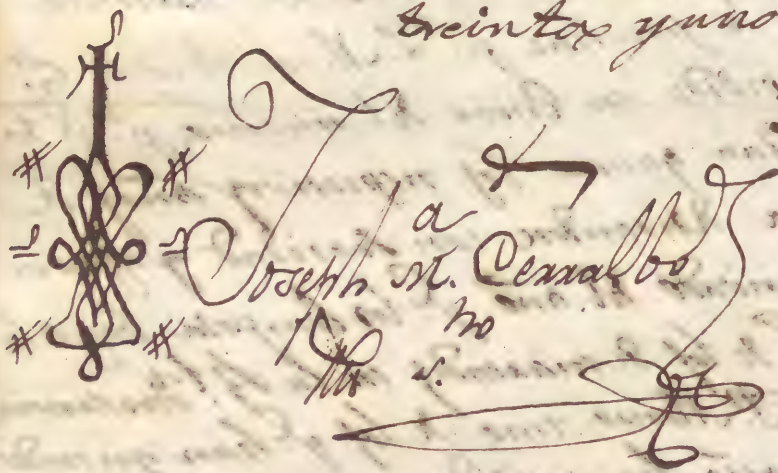 treinta y uno
a
Joseph M. Cerralbo
no